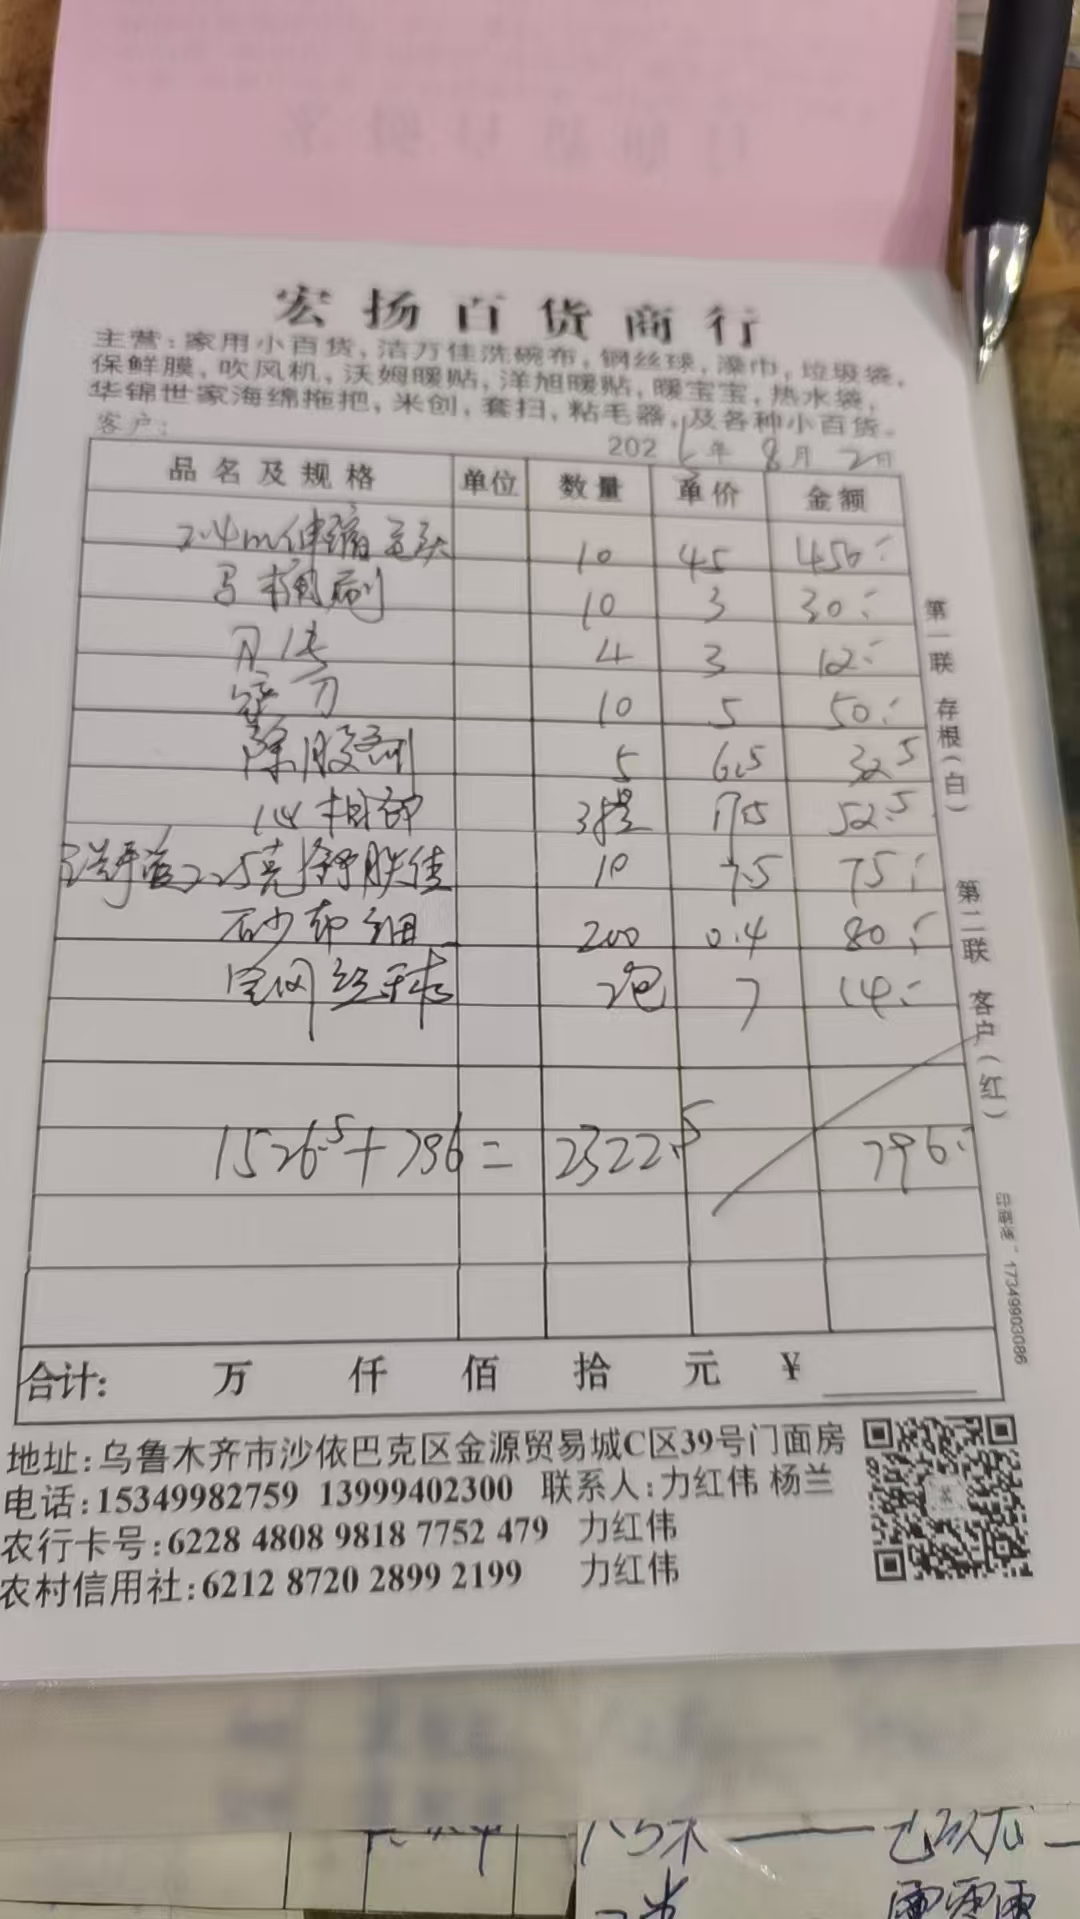 宏扬百货商行
主营:家用小百货,洁万佳洗碗布,钢丝球,澡巾,垃圾袋,
保鲜膜,吹风机,沃姆暖贴,洋旭暖贴,暖宝宝,热水袋,
华锦世家海绵拖把,米创,套扫,粘毛器,及各种小百货。
客户: 202 年 8月 2日
品名及规格 单位 数量 单价 金额
2.4m伸缩 10 45 450
马桶刷 10 3 30
4 3 12
刀 10 5 50
除胶剂 5 6.5 32.5
心相印 3提 17.5 52.5
洗手液225克舒肤佳 10 7.5 75
砂布 细 200 0.4 80
钢丝球 2包 7 14
1526.5+796= 2322.5 796
合计: 万 仟 佰 拾 元 ¥
地址:乌鲁木齐市沙依巴克区金源贸易城C区39号门面房
电话:15349982759 13999402300 联系人:力红伟 杨兰
农行卡号:6228 4808 9818 7752 479 力红伟
农村信用社:6212 8720 2899 2199 力红伟
第一联 存根(白) 第二联 客户(红)
印刷商 17349903086